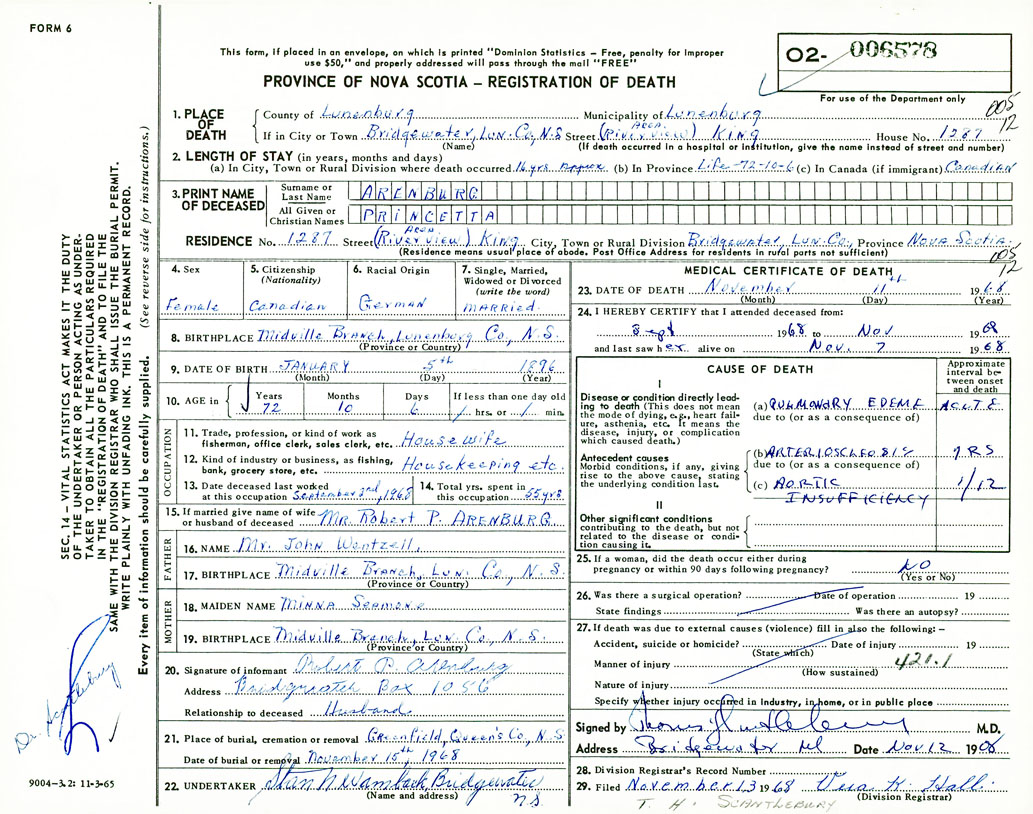 FORM 6
This form, if placed in an envelope, on which is printed "Dominion Statistics – Free, penalty for improper
use $50," and properly addressed will pass through the mail "FREE"
PROVINCE OF NOVA SCOTIA – REGISTRATION OF DEATH
02- 006578
For use of the Department only
005
12
1. PLACE OF DEATH
County of Lunenburg Municipality of Lunenburg
If in City or Town Bridgewater, Lun. Co, N.S Street (Riverview) King House No. 1287
(Name) (If death occurred in a hospital or institution, give the name instead of street and number)
2. LENGTH OF STAY (in years, months and days)
(a) In City, Town or Rural Division where death occurred 16 yrs Appux (b) In Province Life-72-10-6 (c) In Canada (if immigrant) Canadian
3. PRINT NAME OF DECEASED
Surname or Last Name ARENBURG
All Given or Christian Names PRINCETTA
RESIDENCE No. 1287 Street (Riverview) King City, Town or Rural Division Bridgewater, Lun. Co., Province Nova Scotia
(Residence means usual place of abode. Post Office Address for residents in rural parts not sufficient)
005
12
4. Sex
Female
5. Citizenship
(Nationality)
Canadian
6. Racial Origin
German
7. Single, Married,
Widowed or Divorced
(write the word)
MARRIED.
8. BIRTHPLACE Midville Branch, Lunenburg Co, N.S.
(Province or Country)
9. DATE OF BIRTH JANUARY 5th 1896
(Month) (Day) (Year)
10. AGE in
Years Months Days If less than one day old
72 10 6 / hrs. or / min.
OCCUPATION
11. Trade, profession, or kind of work as
fisherman, office clerk, sales clerk, etc. Housewife
12. Kind of industry or business, as fishing,
bank, grocery store, etc. Housekeeping etc.
13. Date deceased last worked
at this occupation September 2nd, 1968
14. Total yrs. spent in
this occupation 55 yrs.
15. If married give name of wife
or husband of deceased MR. Robert P. ARENBURG
FATHER
16. NAME Mr. John Wentzell,
17. BIRTHPLACE Midville Branch, Lun. Co, N.S.
(Province or Country)
MOTHER
18. MAIDEN NAME Minna Seamone
19. BIRTHPLACE Midville Branch, Lun. Co, N.S.
(Province or Country)
20. Signature of informant Robert P. Arenburg
Address Bridgwater Box 1056
Relationship to deceased Husband
21. Place of burial, cremation or removal Greenfield, Queen's Co., N.S
Date of burial or removal November 15th, 1968
22. UNDERTAKER Wamback, Bridgewater
N.S.
(Name and address)
MEDICAL CERTIFICATE OF DEATH
23. DATE OF DEATH November 11th 1968
(Month) (Day) (Year)
24. I HEREBY CERTIFY that I attended deceased from:
Sept 1968 to Nov 1968
and last saw her alive on Nov. 7 1968
CAUSE OF DEATH
Approximate
interval be-
tween onset
and death
I
Disease or condition directly lead-
ing to death (This does not mean
the mode of dying, e.g., heart fail-
ure, asthenia, etc. It means the
disease, injury, or complication
which caused death.)
(a) PULMONARY EDEMA ACUTE
due to (or as a consequence of)
Antecedent causes
Morbid conditions, if any, giving
rise to the above cause, stating
the underlying condition last.
(b) ARTERIOSCLEROSIS YRS
due to (or as a consequence of)
(c) AORTIC 1/12
INSUFFICIENCY
II
Other significant conditions
contributing to the death, but not
related to the disease or condi-
tion causing it.
25. If a woman, did the death occur either during
pregnancy or within 90 days following pregnancy? NO
(Yes or No)
26. Was there a surgical operation? Date of operation 19
State findings Was there an autopsy?
27. If death was due to external causes (violence) fill in also the following: –
Accident, suicide or homicide? Date of injury 19
(State which)
Manner of injury 421.1
(How sustained)
Nature of injury
Specify whether injury occurred in Industry, in home, or in public place
Signed by M.D.
Address Bridgewater Date Nov 12 1968
28. Division Registrar's Record Number
29. Filed November 13 1968 Vera K. Hall
(Division Registrar)
T. H. SCANTLEBURY
SEC. 14 – VITAL STATISTICS ACT MAKES IT THE DUTY
OF THE UNDERTAKER OR PERSON ACTING AS UNDER-
TAKER TO OBTAIN ALL THE PARTICULARS REQUIRED
IN THE "REGISTRATION OF DEATH" AND TO FILE THE
SAME WITH THE DIVISION REGISTRAR WHO SHALL ISSUE THE BURIAL PERMIT.
WRITE PLAINLY WITH UNFADING INK. THIS IS A PERMANENT RECORD.
Every item of information should be carefully supplied. (See reverse side for instructions.)
Dr. Scantlebury
9004-3.2: 11-3-65